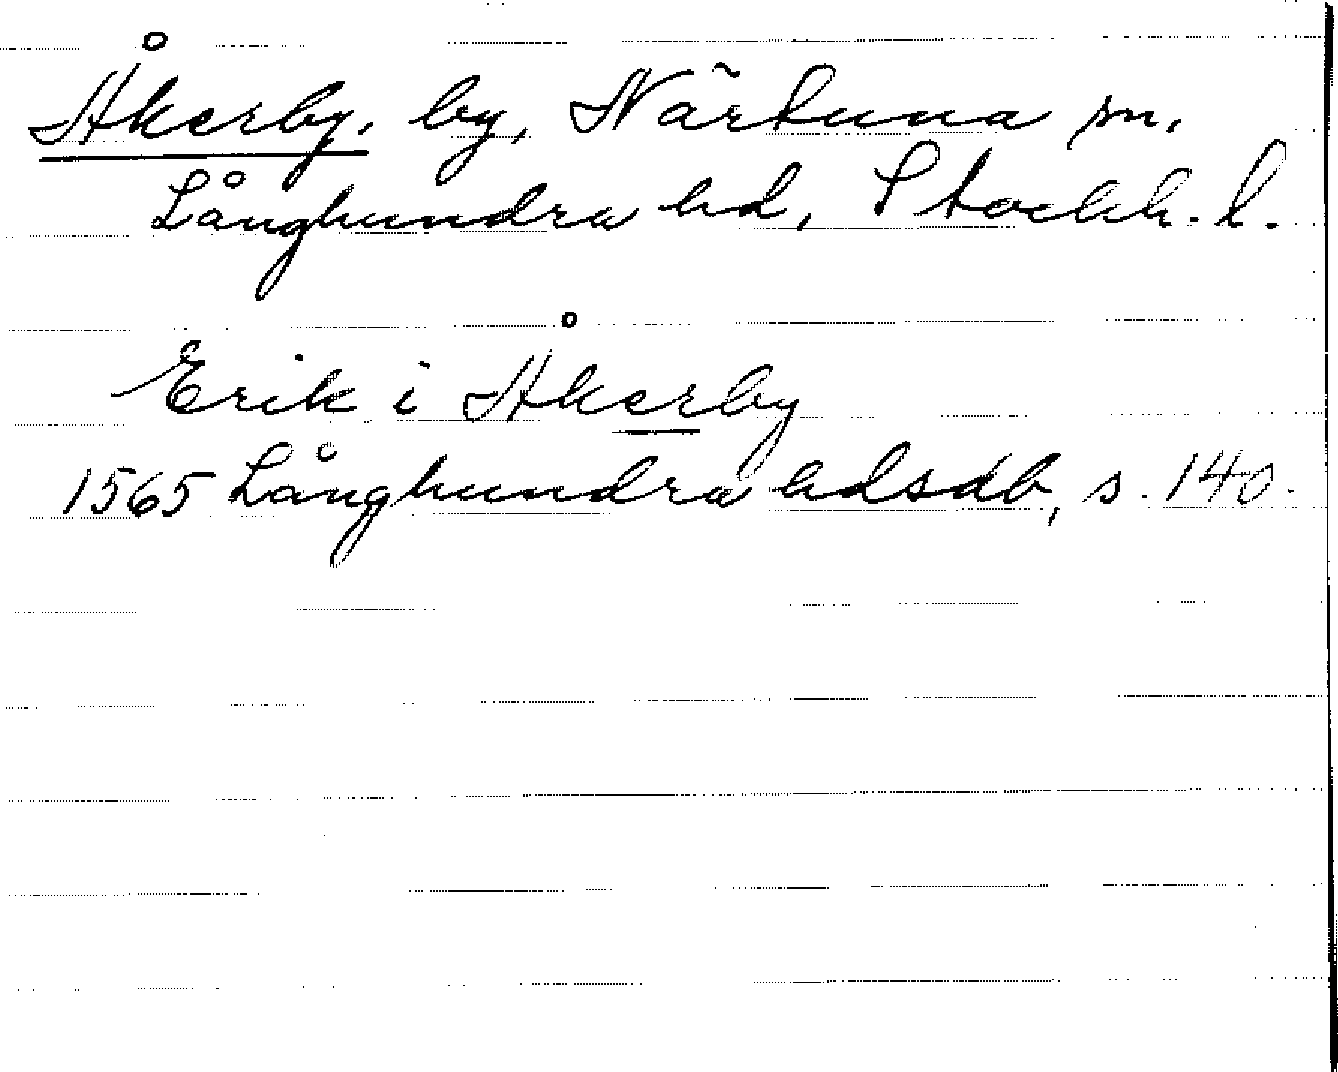 Åkerby, by, Närtuna sn.
Långhundra hd, Stockh. l.
Erik i Åkerby
1565 Långhundra hdsdb, s. 140.